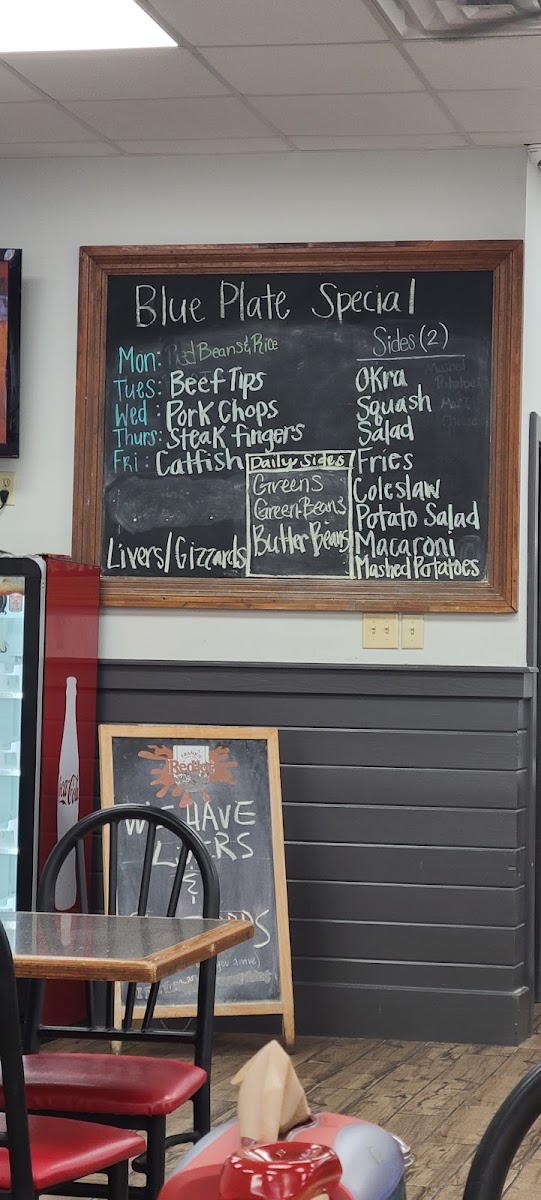 Blue Plate Special
Mon: Red Beans & Rice
Tues: Beef Tips
Wed: Pork Chops
Thurs: Steak fingers
Fri: Catfish
Livers/Gizzards
Daily Sides
Greens
Green Beans
Butter Beans
Sides (2)
Okra
Squash
Salad
Fries
Coleslaw
Potato Salad
Macaroni
Mashed Potatoes
Mashed
Potatoes
Coca-Cola
FRANK'S
RedHot
WE HAVE
&